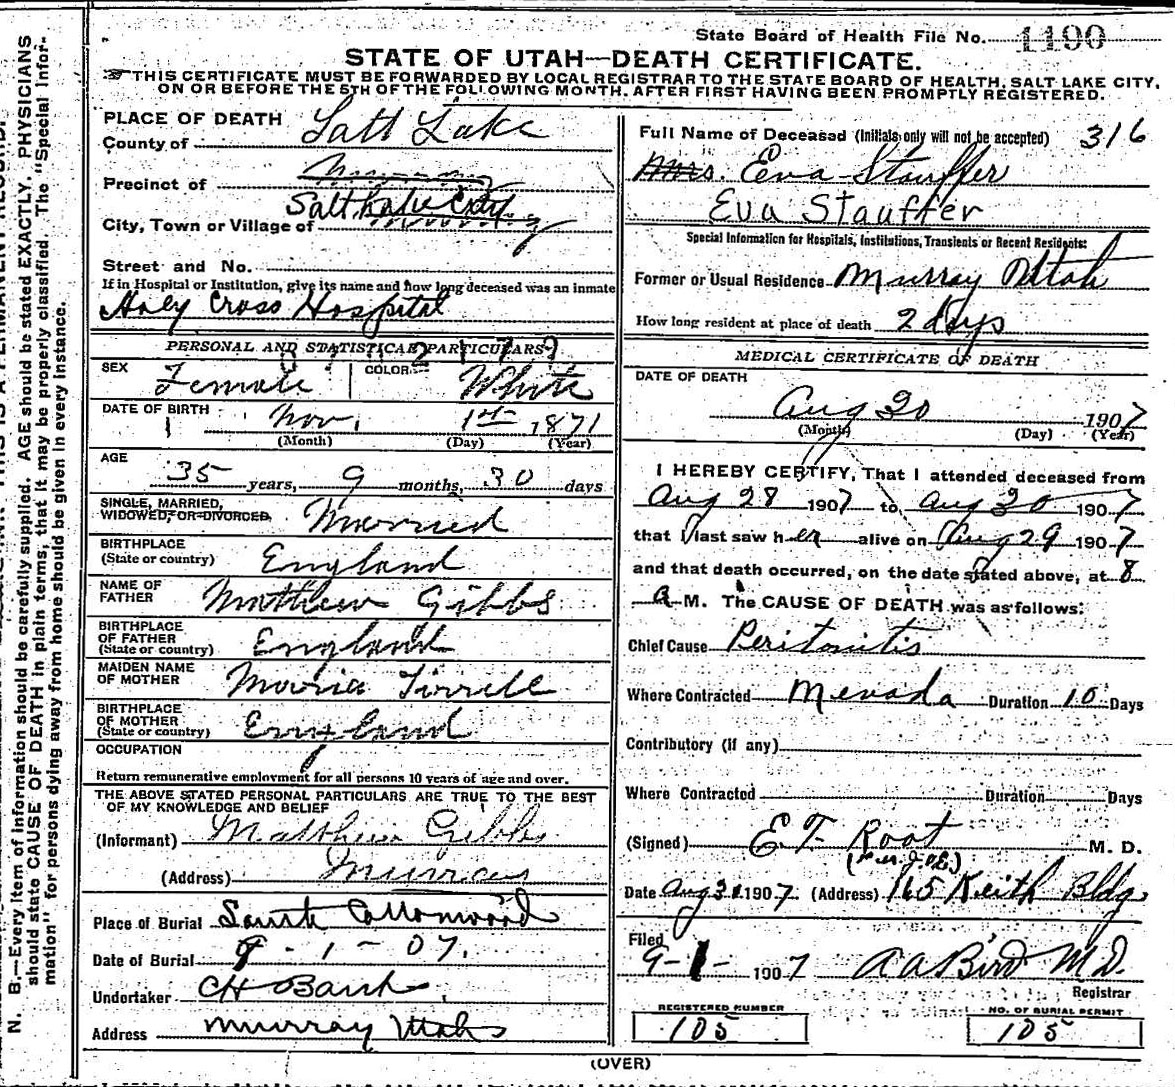 State Board of Health File No. 1190
STATE OF UTAH—DEATH CERTIFICATE.
THIS CERTIFICATE MUST BE FORWARDED BY LOCAL REGISTRAR TO THE STATE BOARD OF HEALTH, SALT LAKE CITY,
ON OR BEFORE THE 5TH OF THE FOLLOWING MONTH, AFTER FIRST HAVING BEEN PROMPTLY REGISTERED.
N. B.—Every item of information should be carefully supplied. AGE should be stated EXACTLY. PHYSICIANS
should state CAUSE OF DEATH in plain terms, that it may be properly classified. The "Special Infor-
mation" for persons dying away from home should be given in every instance.
PLACE OF DEATH
County of Salt Lake
Precinct of
City, Town or Village of Salt Lake City
Street and No.
If in Hospital or Institution, give its name and how long deceased was an inmate
Holy Cross Hospital
PERSONAL AND STATISTICAL PARTICULARS
SEX Female COLOR White
DATE OF BIRTH Nov. 1st 1871
(Month) (Day) (Year)
AGE
35 years, 9 months, 30 days
SINGLE, MARRIED,
WIDOWED, OR DIVORCED, Married
BIRTHPLACE
(State or country) England
NAME OF
FATHER Mathew Gibbs
BIRTHPLACE
OF FATHER
(State or country) England
MAIDEN NAME
OF MOTHER Maria Tirrell
BIRTHPLACE
OF MOTHER
(State or country) England
OCCUPATION
Return remunerative employment for all persons 10 years of age and over.
THE ABOVE STATED PERSONAL PARTICULARS ARE TRUE TO THE BEST
OF MY KNOWLEDGE AND BELIEF
(Informant) Matthew Gibbs
(Address) Murray
Place of Burial South Cottonwood
Date of Burial 9-1-07.
Undertaker
Address Murray Utah
Full Name of Deceased (Initials only will not be accepted) 316
Mrs. Eva Stauffer
Eva Stauffer
Special Information for Hospitals, Institutions, Transients or Recent Residents:
Former or Usual Residence Murray Utah
How long resident at place of death 2 days
MEDICAL CERTIFICATE OF DEATH
DATE OF DEATH
Aug 30 1907
(Month) (Day) (Year)
I HEREBY CERTIFY, That I attended deceased from
Aug 28 1907 to Aug 30 1907
that I last saw her alive on Aug 29 1907
and that death occurred, on the date stated above, at 8
a M. The CAUSE OF DEATH was as follows:
Chief Cause Peritonitis
Where Contracted Nevada Duration 10 Days
Contributory (if any)
Where Contracted Duration Days
(Signed) E. F. Root M. D.
Date Aug 31 1907 (Address) 165 Keith Bldg
Filed
9-1- 1907 A A Bird M.D.
Registrar
REGISTERED NUMBER
105
NO. OF BURIAL PERMIT
105
(OVER)